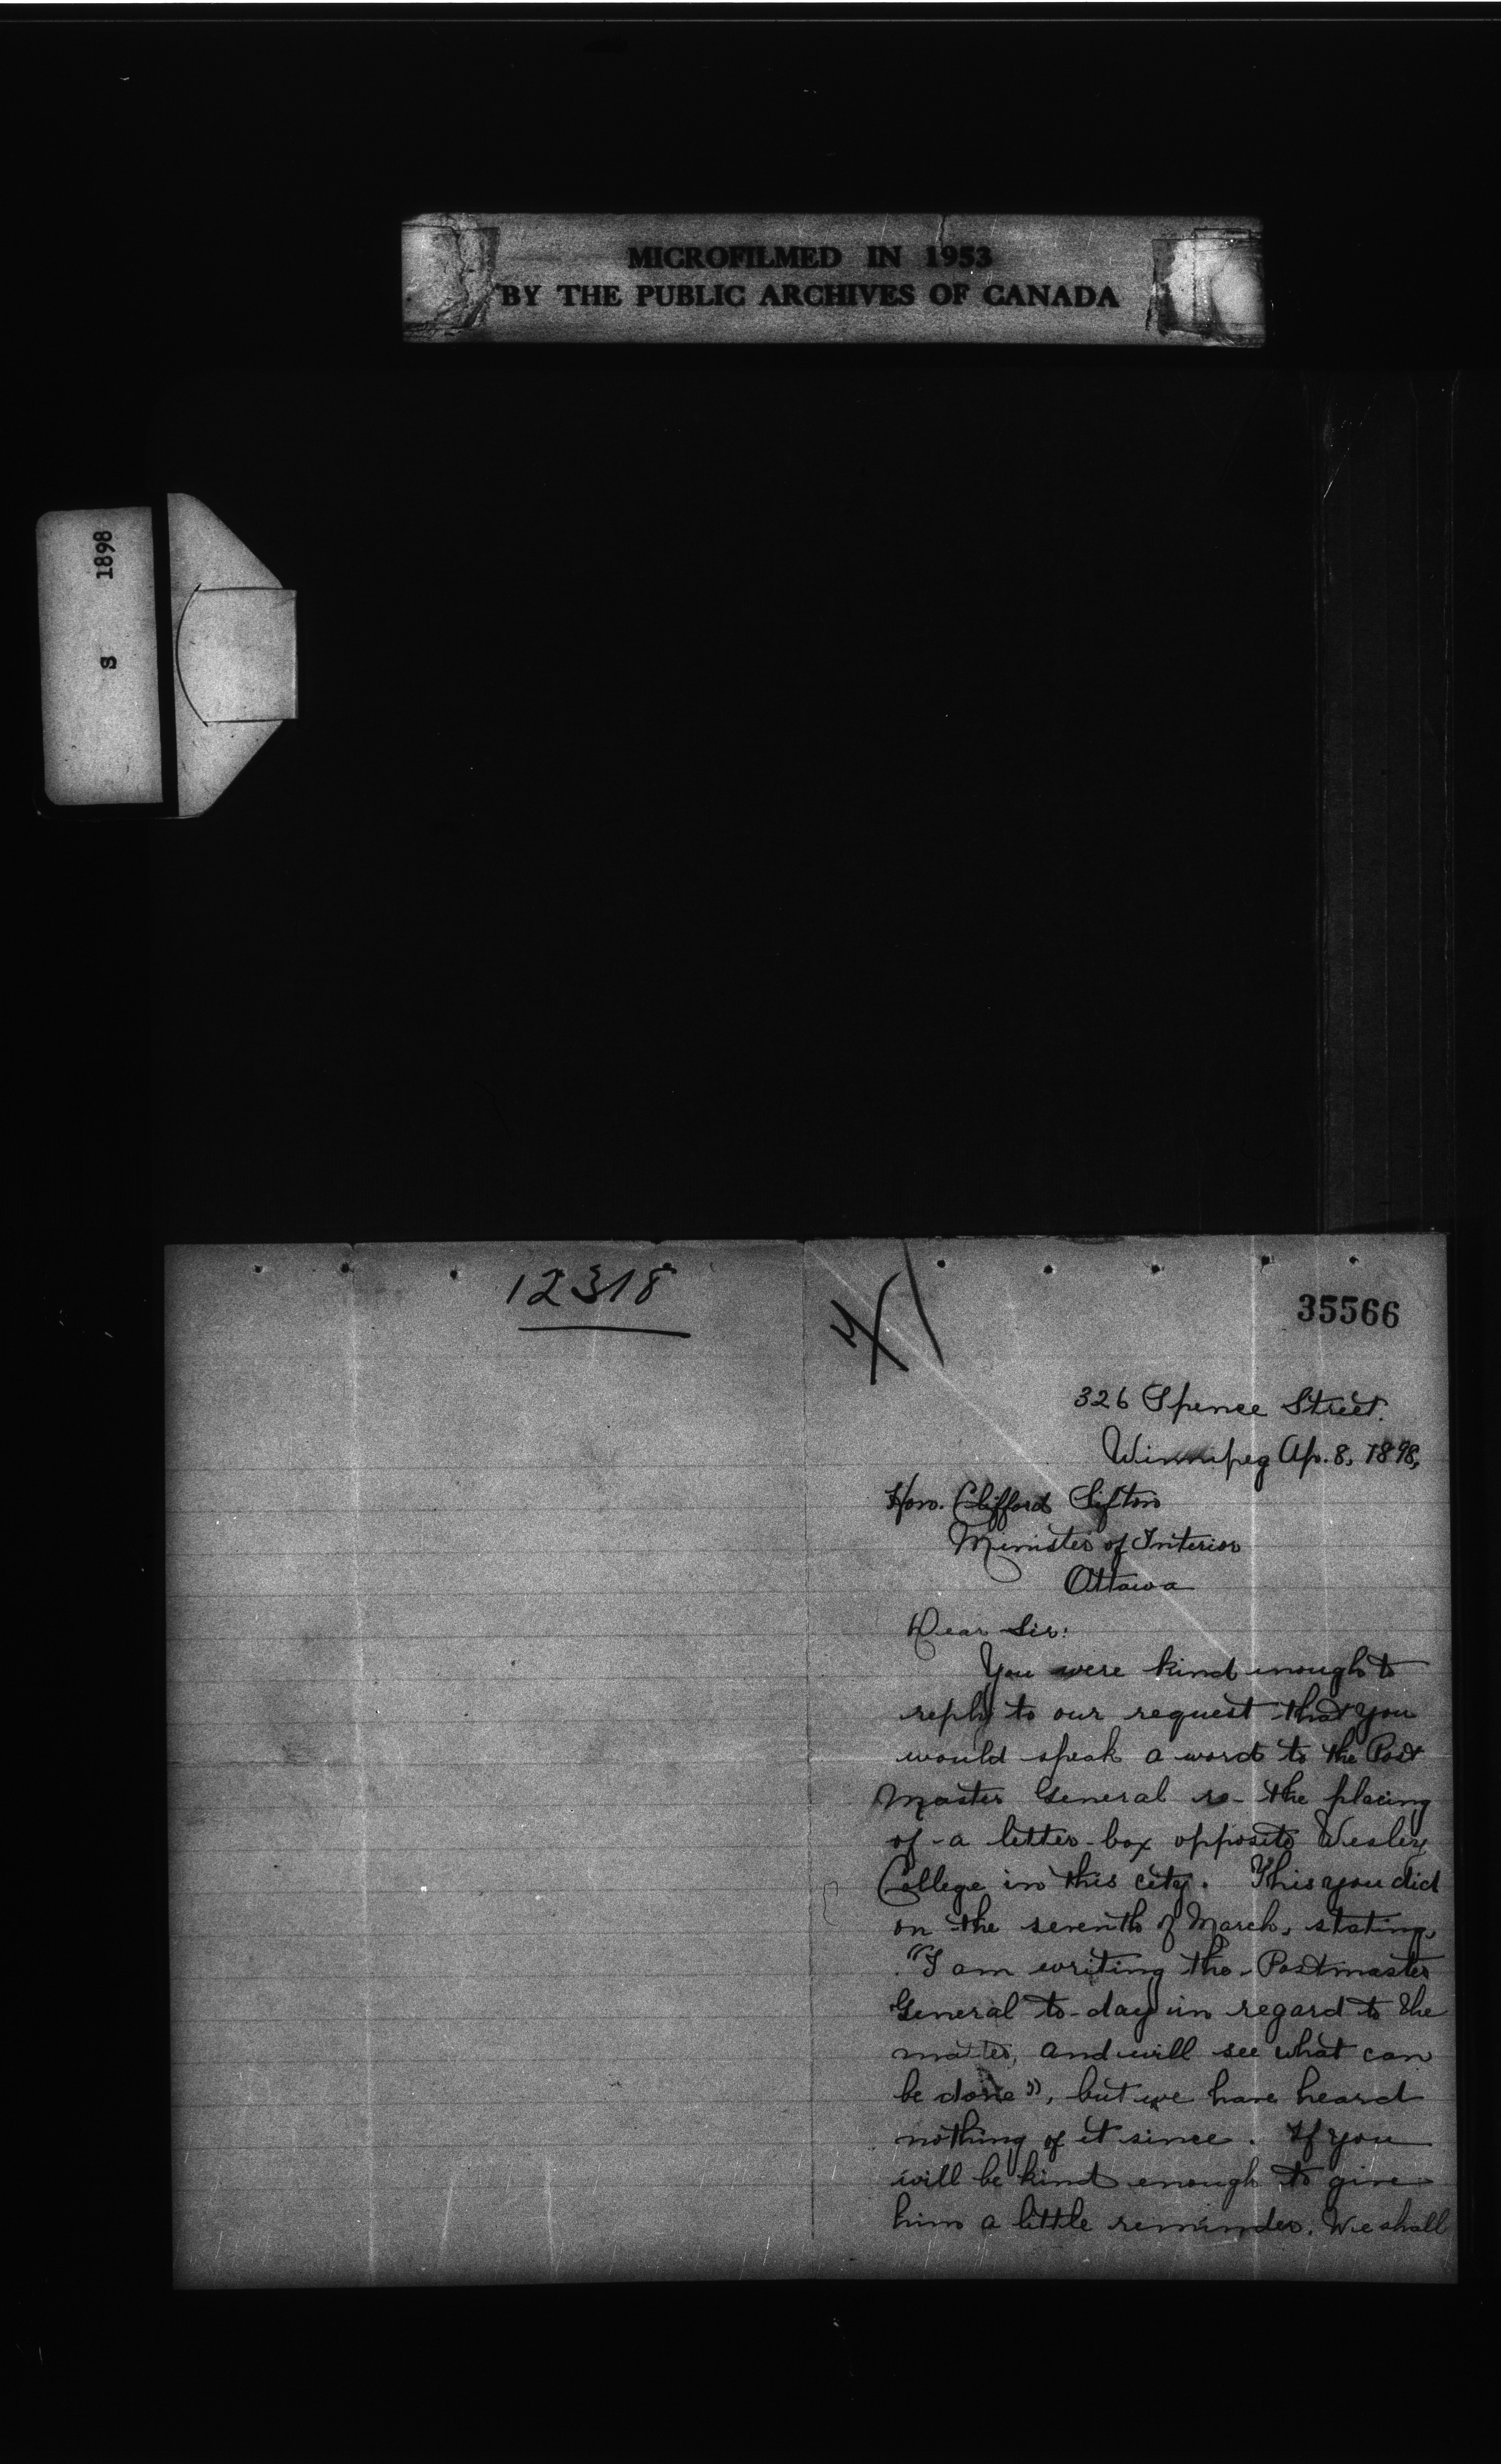 MICROFILMED IN 1953
BY THE PUBLIC ARCHIVES OF CANADA
S 1898
12318
35566
326 Spence Street.
Winnipeg Ap. 8, 1898,
Hon. Clifford Sifton
Minister of Interior
Ottawa
Dear Sir:
You were kind enough to
reply to our request that you
would speak a word to the Post
Master General re the placing
of a letter-box opposite Wesley
College in this city. This you did
on the seventh of March, stating,
"I am writing the Postmaster
General to-day in regard to the
matter, and will see what can
be done", but we have heard
nothing of it since. If you
will be kind enough to give
him a little reminder. We shall